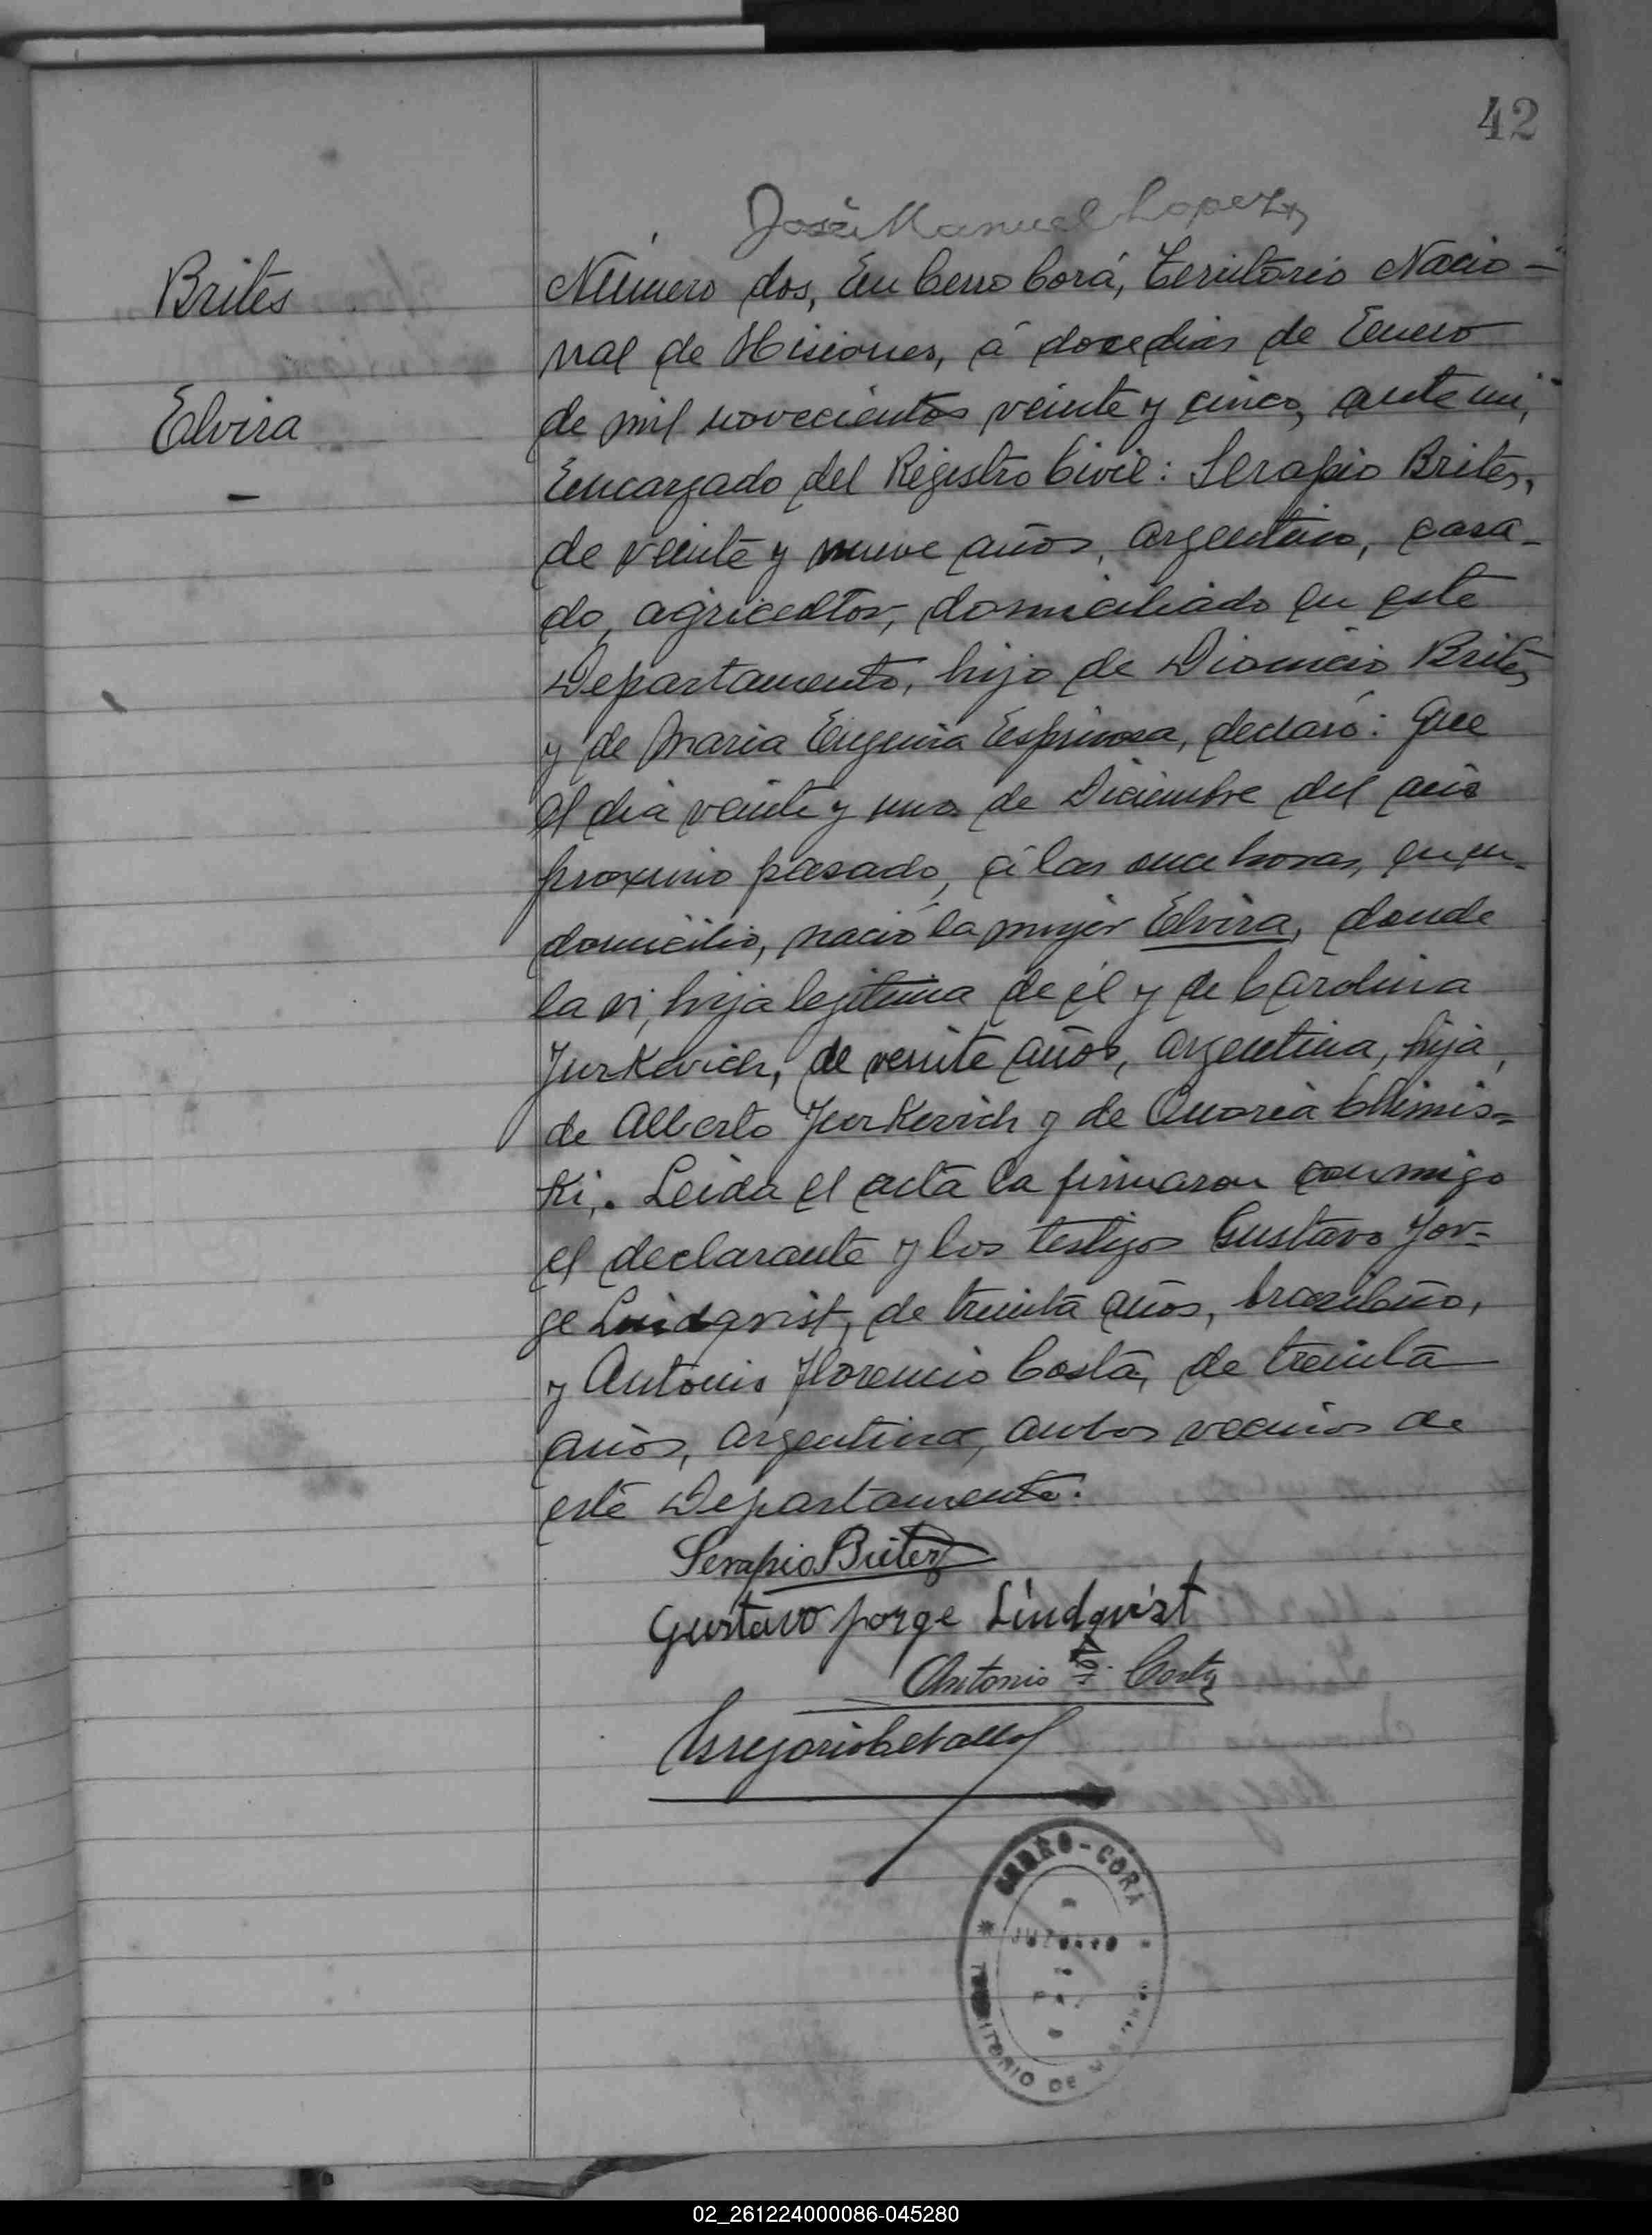 42
José Manuel Lopez
Brites
Elvira
Número dos, En Cerro Corá, Territorio Nacio-
nal de Misiones, á doce dias de Enero
de mil novecientos veinte y cinco, ante mi,
Encargado del Registro Civil: Serapio Brites,
de veinte y nueve años, argentino, casa-
do, agricultor, domiciliado en este
Departamento, hijo de Dionicio Brites
y de Maria Eugenia Espinosa, declaró: Que
el dia veinte y uno de Diciembre del año
proximo pasado, á las once horas, en su
domicilio, nació la mujer Elvira, donde
la vi, hija legitima de él y de Carolina
Jurkevich, de veinte años, argentina, hija
de Alberto Jurkevich y de
ki,. Leida el acta la firmaron conmigo
el declarante y los testigos Gustavo Jor-
ge Lindqvist, de treinta años, brasileño,
y Antonio Florencio Costa, de treinta
años, argentino, ambos vecinos de
este Departamento.
Serapio Britez
Gustavo Jorge Lindqvist
Antonio F. Costa
Gregorio
CERRO-CORÁ
JUZGADO
TERRITORIO DE MISIONES
02_261224000086-045280